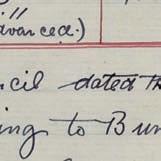 dvanced.)
ncil dated th
ing to Bun